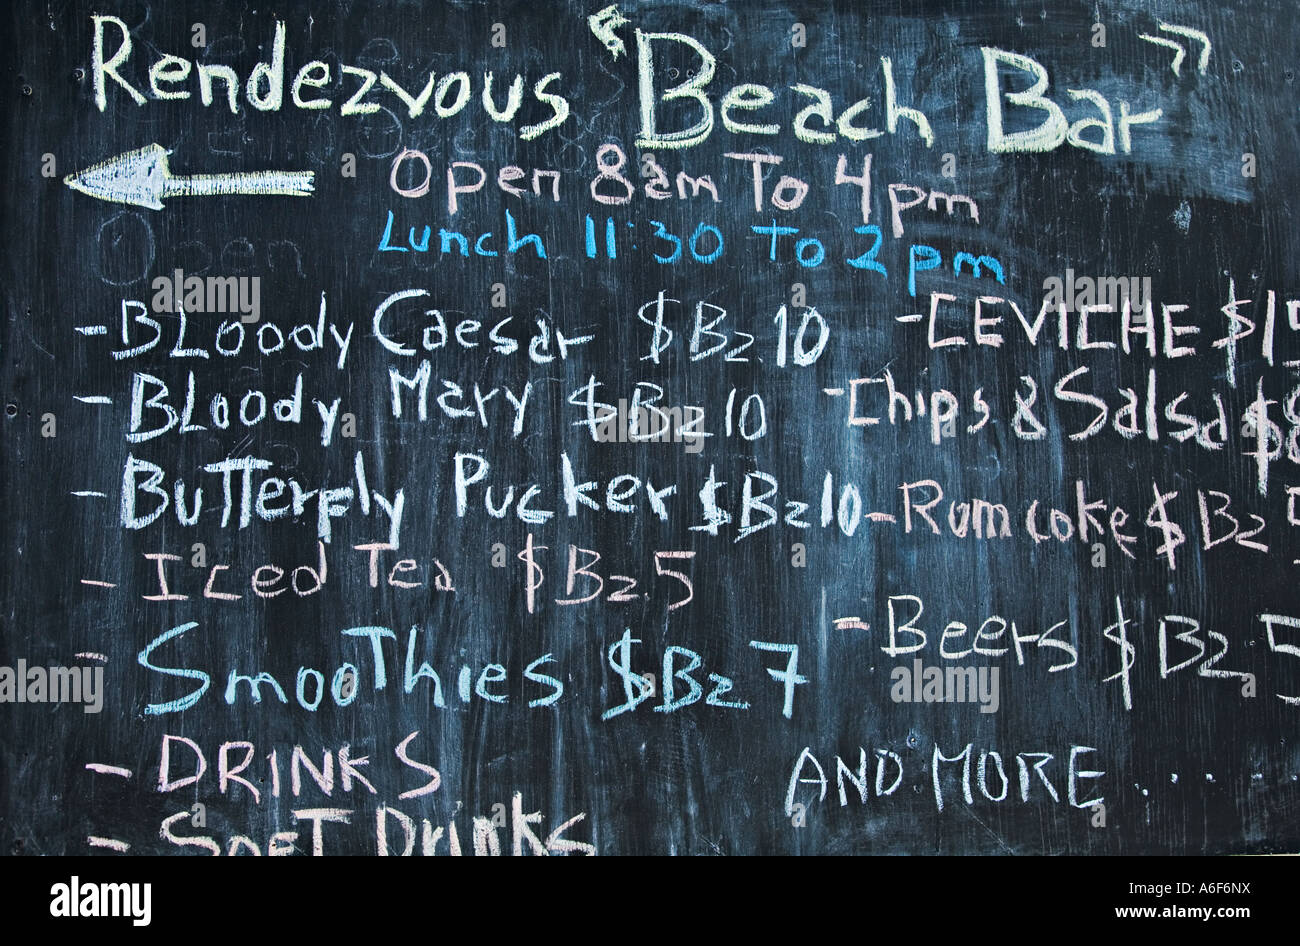 Rendezvous "Beach Bar"
Open 8am To 4pm
Lunch 11:30 To 2pm
Open
- BLoody Caesar $Bz 10
- BLoody Mary $Bz 10
- Butterfly Pucker $Bz 10
- Iced Tea $Bz 5
- Smoothies $Bz 7
- DRINKS
- Soft Drinks
- CEVICHE $
- Chips & Salsa $
- Rum coke $Bz
- Beers $Bz 5
AND MORE . . . . .
alamy
Image ID: A6F6NX
www.alamy.com